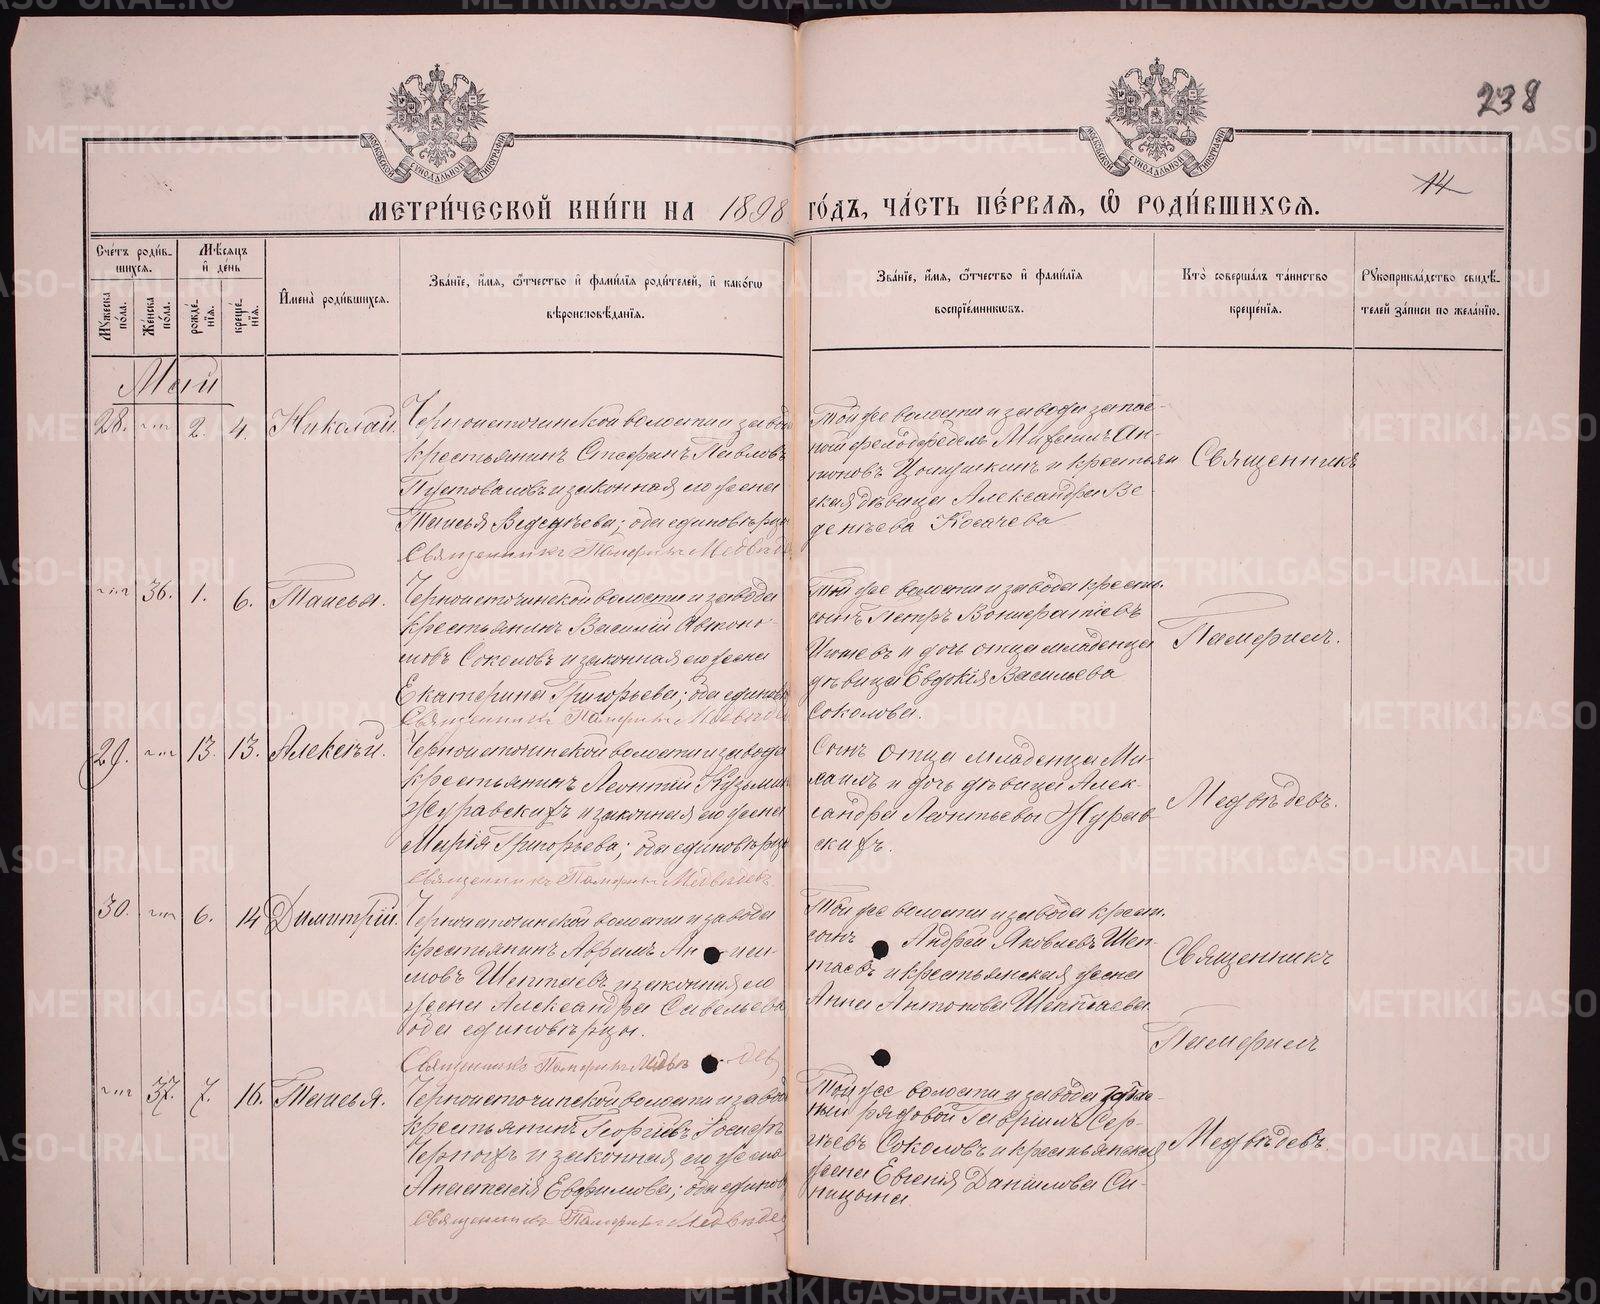 238
14
МЕТРИ́ЧЕСКОЙ КНИ́ГИ НА 1898 ГО́ДЪ, ЧА́СТЬ ПЕ́РВАЯ, Ѡ РОДИ́ВШИХСЯ.
Сче́тъ роди́в-
шихся.
Му́жеска по́ла.
Же́нска по́ла.
Мѣ́сяцъ
и́ де́нь
рожде́-
нїя.
креще́-
нїя.
И҆мена̀ роди́вшихся.
Зва́нїе, и҆́мя, ѻ҆́тчество и҆ фами́лїя роди́телей, и҆ како́гѡ
вѣроисповѣ́данїя.
Зва́нїе, и҆́мя, ѻ҆́тчество и҆ фами́лїя
воспрїе́мникѡвъ.
Кто̀ соверша́лъ та́инство
креще́нїя.
Рꙋкоприкла́дство свидѣ́-
телей за́писи по жела́нїю.
Май
28. 2. 4. Николай.
Черноисточинской волости и завода
крестьянинъ Стефанъ Павловъ
Пустоваловъ и законная его жена
Таисья Веденѣева; оба единовѣрцы
Священникъ Памфилъ Медвѣдевъ
Той же волости и завода запас-
ной фельдфебель Михаилъ Ан-
тоновъ и крестьян
ская дѣвица Александра Ве-
денѣева Косачева
Священникъ
36. 1. 6. Таисья.
Черноисточинской волости и завода
крестьянинъ Василій Автоно-
мовъ Соколовъ и законная его жена
Екатерина Григорьева; оба единов
Священникъ Памфилъ Медвѣдевъ
Той же волости и завода крест.
сынъ Петръ Вонифатіевъ
и дочь отца младенца
дѣвица Евдокія Васильева
Соколова.
Памфилъ.
29. 13. 13. Алексѣй.
Черноисточинской волости и завода
крестьянинъ Леонтій Кузьмин
Журавскихъ и законная его жена
Марія Григорьева; оба единовѣрцы
Священникъ Памфилъ Медвѣдевъ
Сынъ отца младенца Ми-
хаилъ и дочь дѣвица Алек-
сандра Леонтьевы Журав-
скихъ.
Медвѣдевъ.
30. 6. 14 Димитрій.
Черноисточинской волости и завода
крестьянинъ Абрамъ
мовъ Шептаевъ и законная его
жена Александра Савельева
оба единовѣрцы.
Священникъ Памфилъ Медвѣдев
Той же волости и завода крест.
сынъ Андрей Яковлевъ Шеп-
таевъ и крестьянская жена
Анна Антонова Шептаева
Священникъ
Памфилъ
37. 7. 16. Таисья.
Черноисточинской волости и завод
крестьянинъ Георгій Іосифовъ
Черныхъ и законная его жена
Анастасія Евфимова; оба единов
Священникъ Памфилъ Медвѣдев
Той же волости и завода запас-
ный рядовой Гавріилъ Сер-
гѣевъ Соколовъ и крестьянская
жена Евгенія Даніилова Си-
ницына
Медвѣдевъ.
METRIKI.GASO-URAL.RU